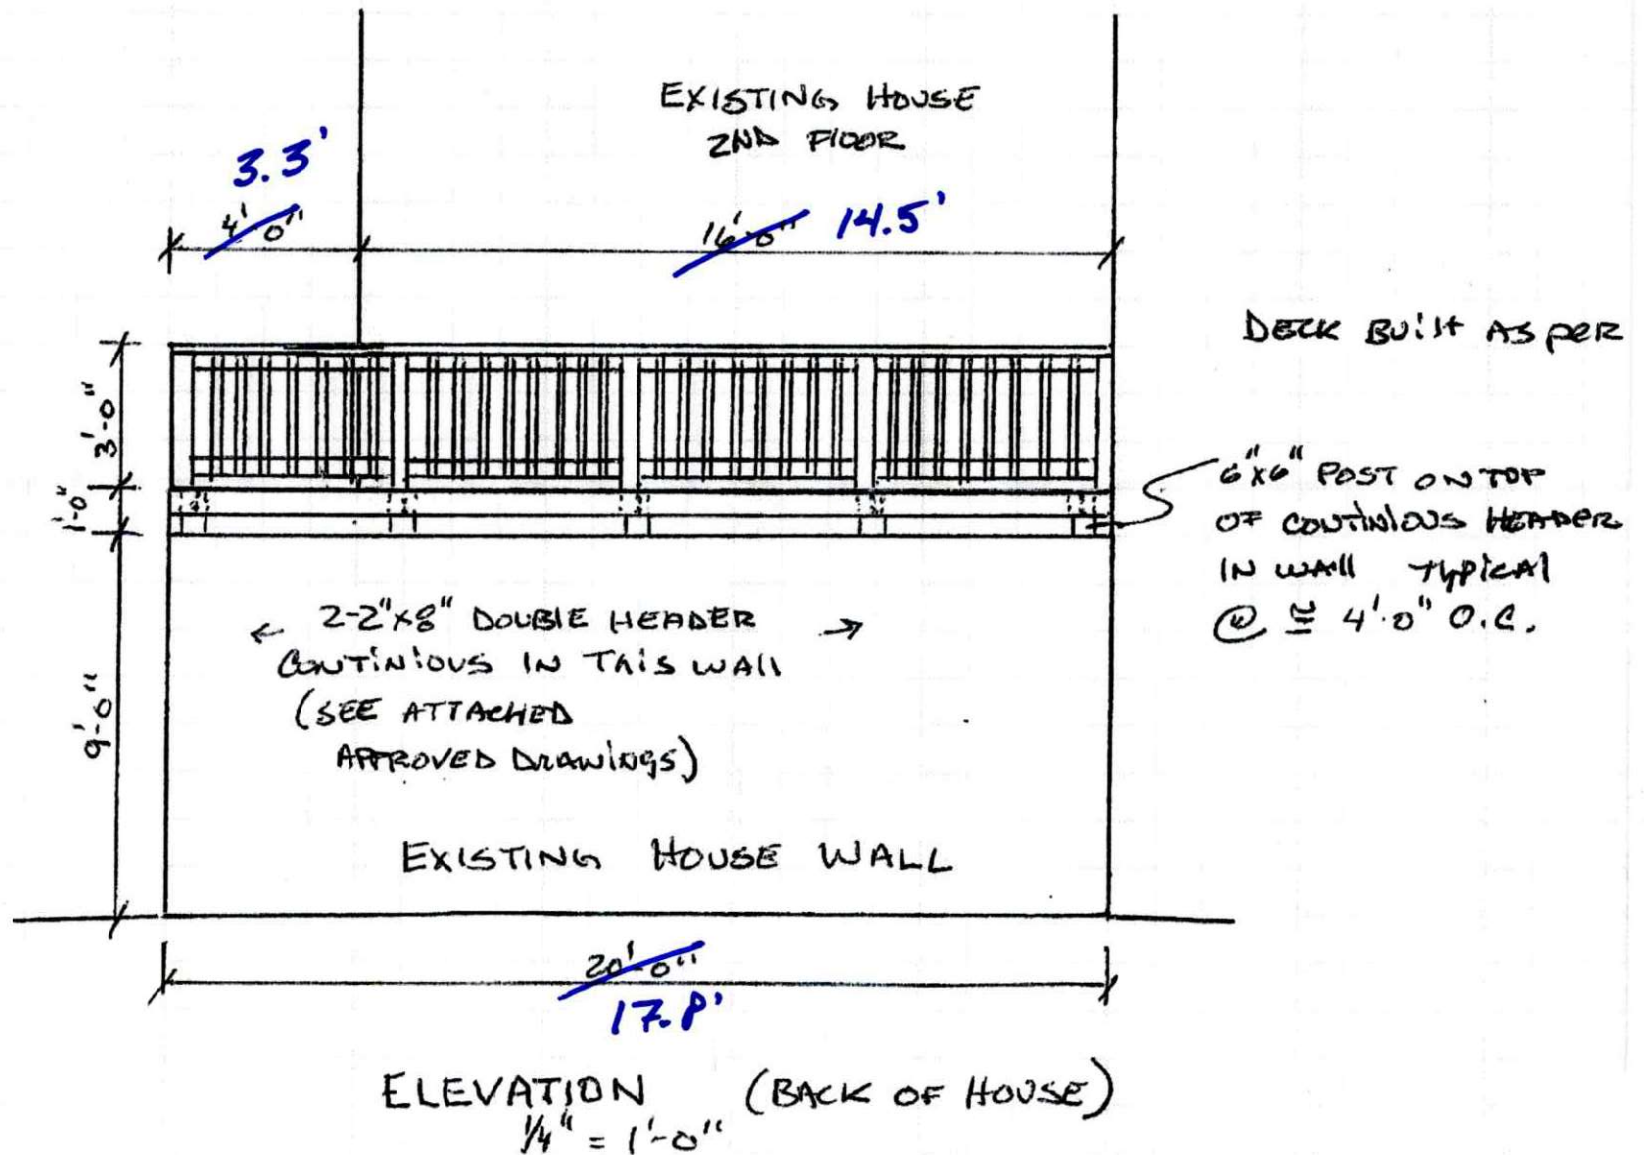 EXISTING HOUSE
2ND FLOOR
3.3'
4'-0"
16'-0" 14.5'
DECK BUILT AS PER
3'-0"
1'-0"
9'-0"
6"x6" POST ON TOP
OF CONTINIOUS HEADER
IN WALL TYPICAL
@ ≅ 4'-0" O.C.
← 2-2"x8" DOUBLE HEADER →
CONTINIOUS IN THIS WALL
(SEE ATTACHED
APPROVED DRAWINGS)
EXISTING HOUSE WALL
20'-0"
17.8'
ELEVATION (BACK OF HOUSE)
1/4" = 1'-0"